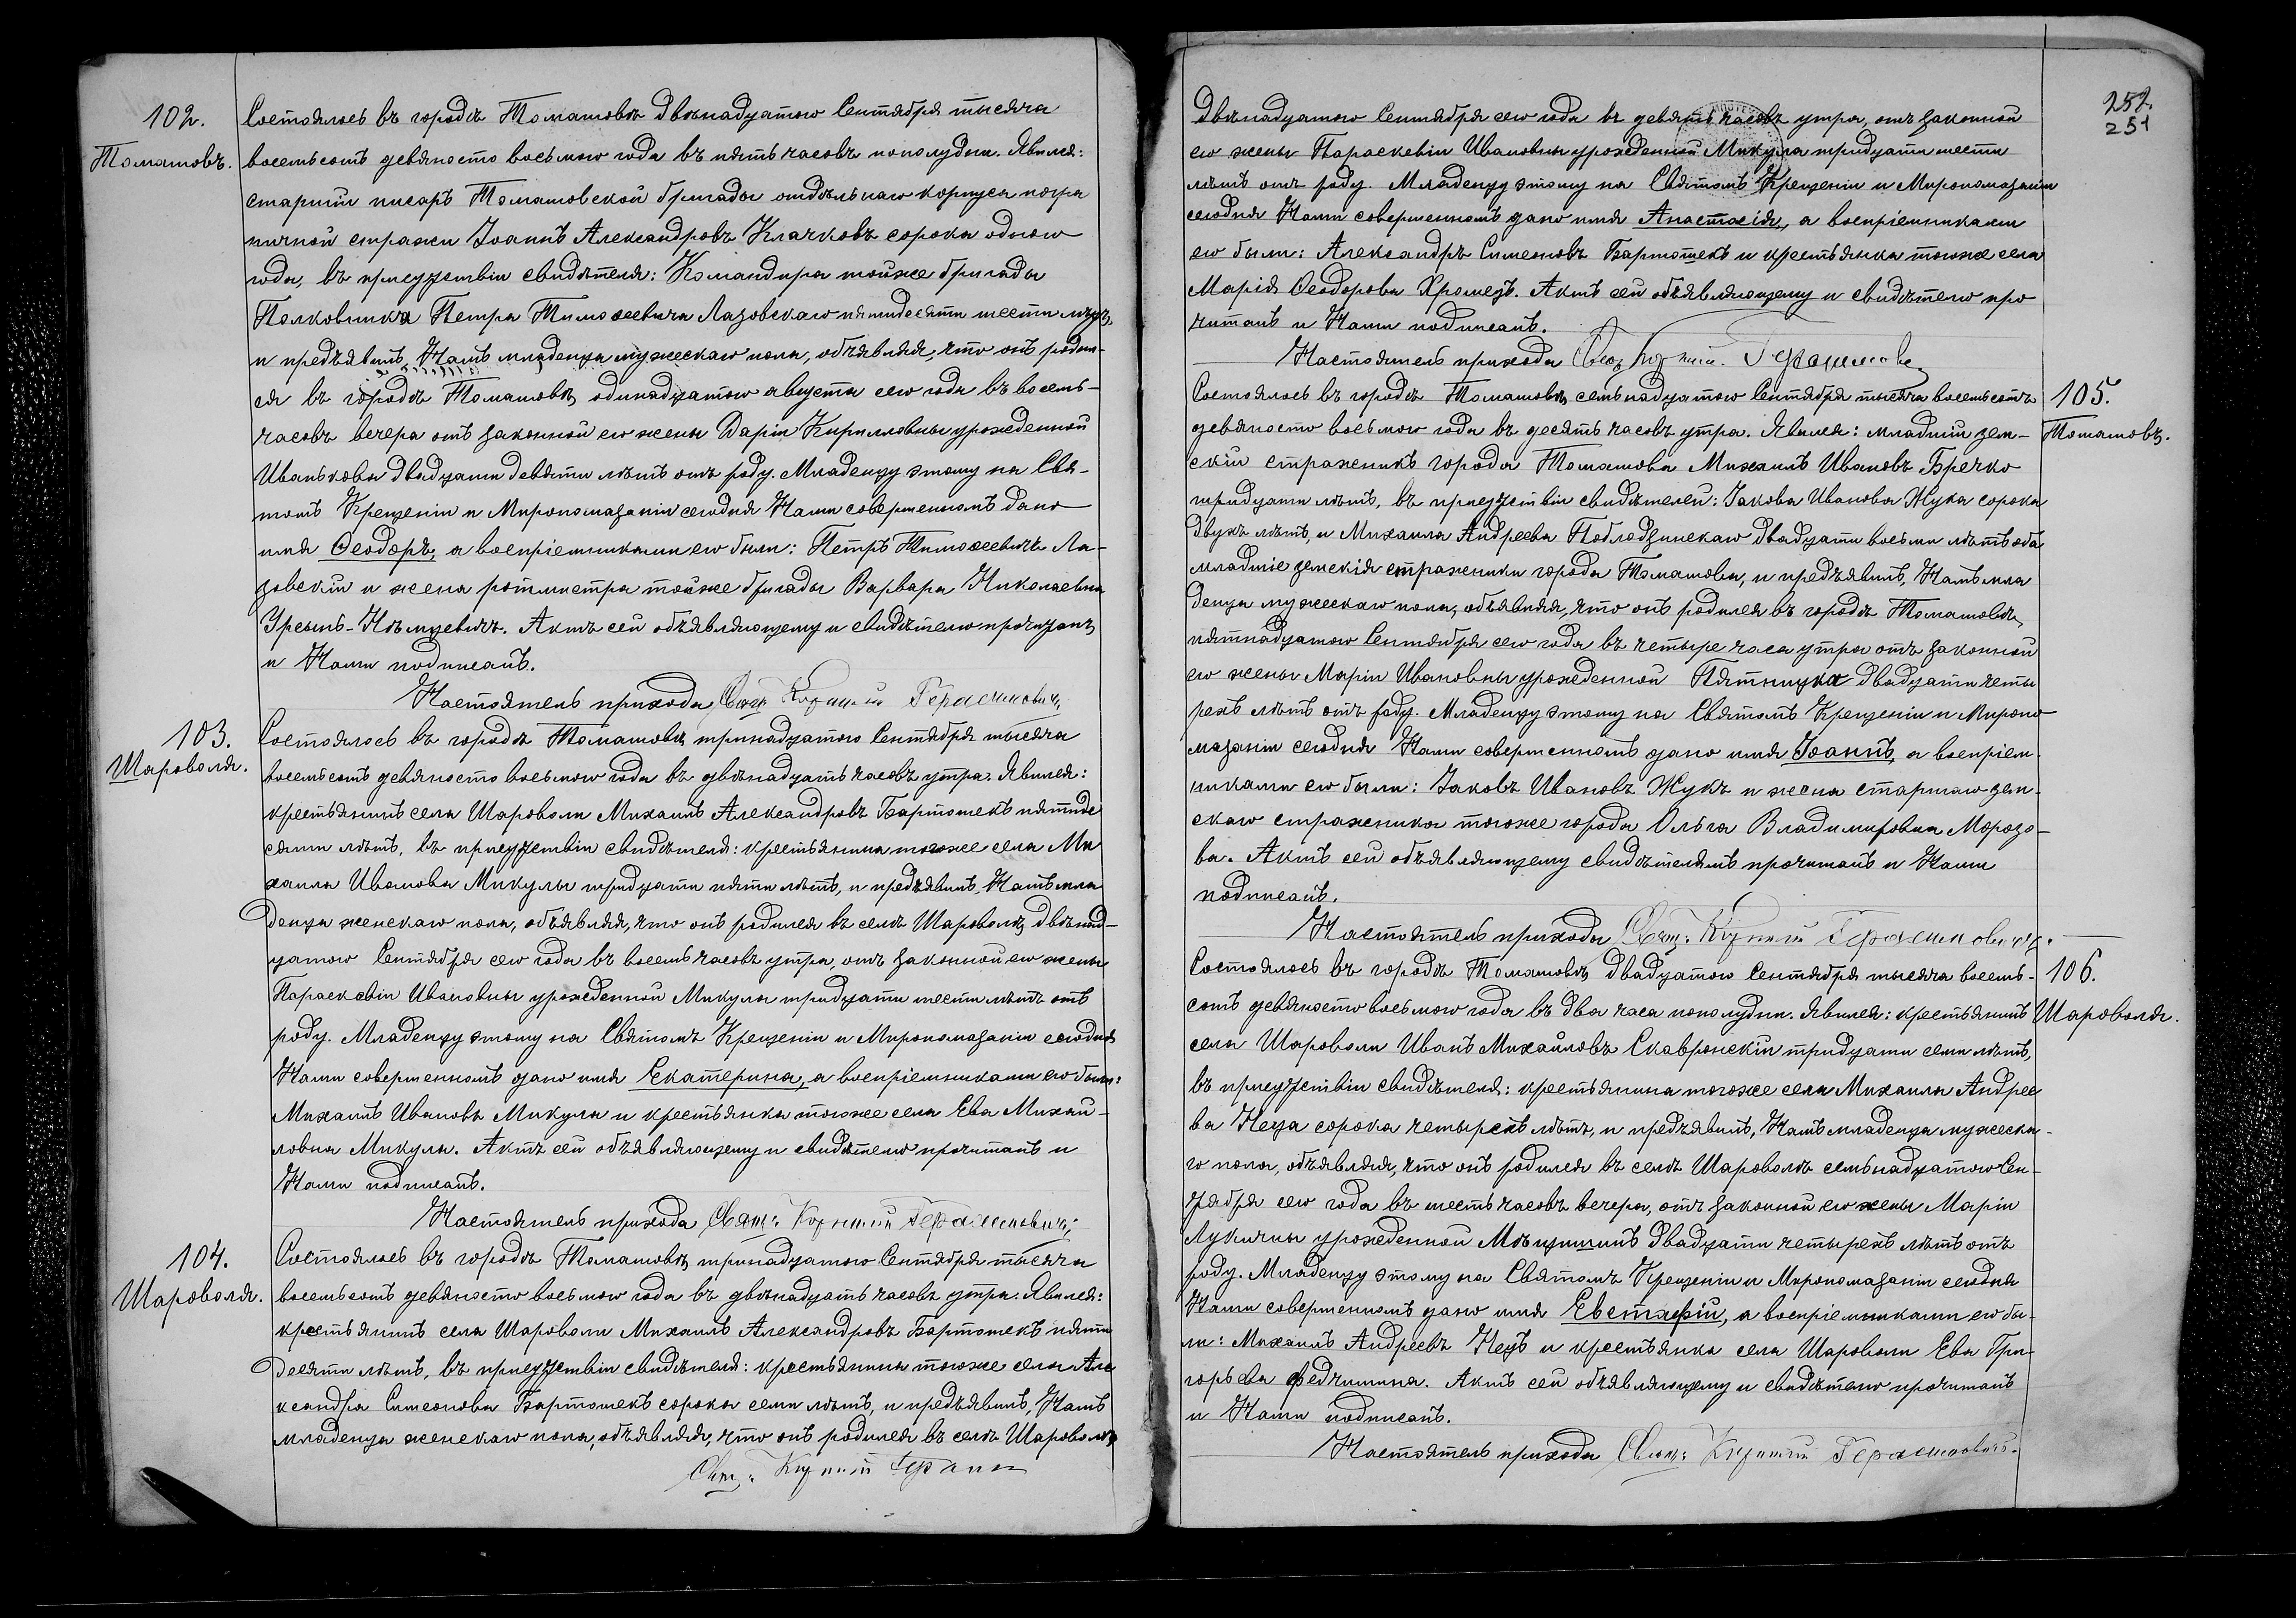 102.
Томашовъ.
Состоялось въ городѣ Томашовѣ двѣнадцатого Сентября тысяча
восемьсотъ девяносто восьмого года въ пять часовъ пополудни. Явился:
старшій писарь Томашовской бригады отдѣльнаго корпуса погра
ничной стражи Іоаннъ Александровъ Клачковъ сорока одного
года, въ присутствіи свидѣтеля: Командира тойже бригады
Полковника Петра Тимоѳеевича Лазовскаго пятидесяти шести лѣтъ,
и предъявилъ Намъ младенца мужескаго пола, объявляя, что онъ родил-
ся въ городѣ Томашовѣ одинадцатого августа сего года въ восемь
часовъ вечера отъ законной его жены Дарiи Кирилловны урожденной
Иваньковы двадцати девяти лѣтъ отъ роду. Младенцу этому на Свя-
томъ Крещеніи и Миропомазаніи сегодня Нами совершенномъ дано
имя Ѳеодоръ, а воспріемниками его были: Петръ Тимоѳеевичъ Ла-
зовскій и жена ротмистра тойже бригады Варвара Николаевна
Урсынъ-Нѣмцевичъ. Актъ сей объявляющему и свидѣтелю прочитанъ
и Нами подписанъ.
Настоятель прихода Свящ. Корнилій Герасимовичъ
103.
Шароволя.
Состоялось въ городѣ Томашовѣ тринадцатого Сентября тысяча
восемьсотъ девяносто восьмого года въ двѣнадцать часовъ утра. Явился:
крестьянинъ села Шароволи Михаилъ Александровъ Бартошекъ пятиде
сяти лѣтъ, въ присутствіи свидѣтеля: крестьянина тогоже села Ми
хаила Иванова Микулы тридцати пяти лѣтъ, и предъявилъ Намъ мла
денца женскаго пола, объявляя, что онъ родился въ селѣ Шароволѣ двѣнад-
цатого Сентября сего года въ восемь часовъ утра, отъ законной его жены
Параскевіи Ивановны урожденной Микулы тридцати шести лѣтъ отъ
роду. Младенцу этому на Святомъ Крещеніи и Миропомазаніи сегодня
Нами совершенномъ дано имя Екатерина, а воспріемниками его были:
Михаилъ Ивановъ Микула и крестьянка тогоже села Ева Михай-
ловна Микулы. Актъ сей объявляющему и свидѣтелю прочитанъ и
Нами подписанъ.
Настоятель прихода Свящ. Корнилій Герасимовичъ
104.
Шароволя.
Состоялось въ городѣ Томашовѣ тринадцатого Сентября тысяча
восемьсотъ девяносто восьмого года въ двѣнадцать часовъ утра. Явился:
крестьянинъ села Шароволи Михаилъ Александровъ Бартошекъ пяти
десяти лѣтъ, въ присутствіи свидѣтеля: крестьянина тогоже села Але
ксандра Симеонова Бартошекъ сорока семи лѣтъ, и предъявилъ, Намъ
младенца женскаго пола, объявляя, что онъ родился въ селѣ Шароволѣ
Свящ. Корнилій
252.
251
двѣнадцатого Сентября сего года въ девять часовъ утра, отъ законной
его жены Параскевіи Ивановны урожденной Микула тридцати шести
лѣтъ отъ роду. Младенцу этому на Святомъ Крещеніи и Миропомазаніи
сегодня Нами совершенномъ дано имя Анастасія, а воспріемниками
его были: Александръ Симеоновъ Бартошекъ и крестьянка тогоже села
Марія Ѳеодорова Хромецъ. Актъ сей объявляющему и свидѣтелю про
читанъ и Нами подписанъ.
Настоятель прихода Свящ. Корнилій Герасимовичъ
105.
Томашовъ.
Состоялось въ городѣ Томашовѣ семьнадцатого Сентября тысяча восемьсотъ
девяносто восьмого года въ десять часовъ утра. Явился: младшій зем-
скій стражникъ города Томашова Михаилъ Ивановъ Бречко
тридцати лѣтъ, въ присутствіи свидѣтелей: Іакова Иванова Жука сорока
двухъ лѣтъ, и Михаила Андреева Подлодзинскаго двадцати восьми лѣтъ оба
младшіе земскія стражники города Томашова, и предъявилъ, Намъ мла
денца мужескаго пола, объявляя, что онъ родился въ городѣ Томашовѣ,
пятнадцатого Сентября сего года въ четыре часа утра отъ законной
его жены Маріи Ивановны урожденной Пятницка двадцати четы
рехъ лѣтъ отъ роду. Младенцу этому на Святомъ Крещеніи и Миропо
мазаніи сегодня Нами совершенномъ дано имя Іоаннъ, а воспріем-
никами его были: Іаковъ Ивановъ Жукъ и жена старшаго зем-
скаго стражника тогоже города Ольга Владимировна Морозо-
ва. Актъ сей объявляющему свидѣтелямъ прочитанъ и Нами
подписанъ.
Настоятель прихода Свящ. Корнилій Герасимовичъ.
106.
Шароволя.
Состоялось въ городѣ Томашовѣ двадцатого Сентября тысяча восемь-
сотъ девяносто восьмого года въ два часа пополудни. Явился: крестьянинъ
села Шароволи Иванъ Михайловъ Скавронскій тридцати семи лѣтъ,
въ присутствіи свидѣтеля: крестьянина тогоже села Михаила Андрее
ва Неца сорока четырехъ лѣтъ, и предъявилъ, Намъ младенца мужеска-
го пола, объявляя, что онъ родился въ селѣ Шароволѣ семьнадцатого Сен-
тября сего года въ шесть часовъ вечера, отъ законной его жены Маріи
Лукичны урожденной Мѣщишинъ двадцати четырехъ лѣтъ отъ
роду. Младенцу этому на Святомъ Крещеніи и Миропомазаніи сегодня
Нами совершенномъ дано имя Евстафій, а воспріемниками его бы-
ли: Михаилъ Андреевъ Нецъ и крестьянка села Шароволи Ева Гри-
горьева Федчишина. Актъ сей объявляющему и свидѣтелю прочитанъ
и Нами подписанъ.
Настоятель прихода Свящ. Корнилій Герасимовичъ.